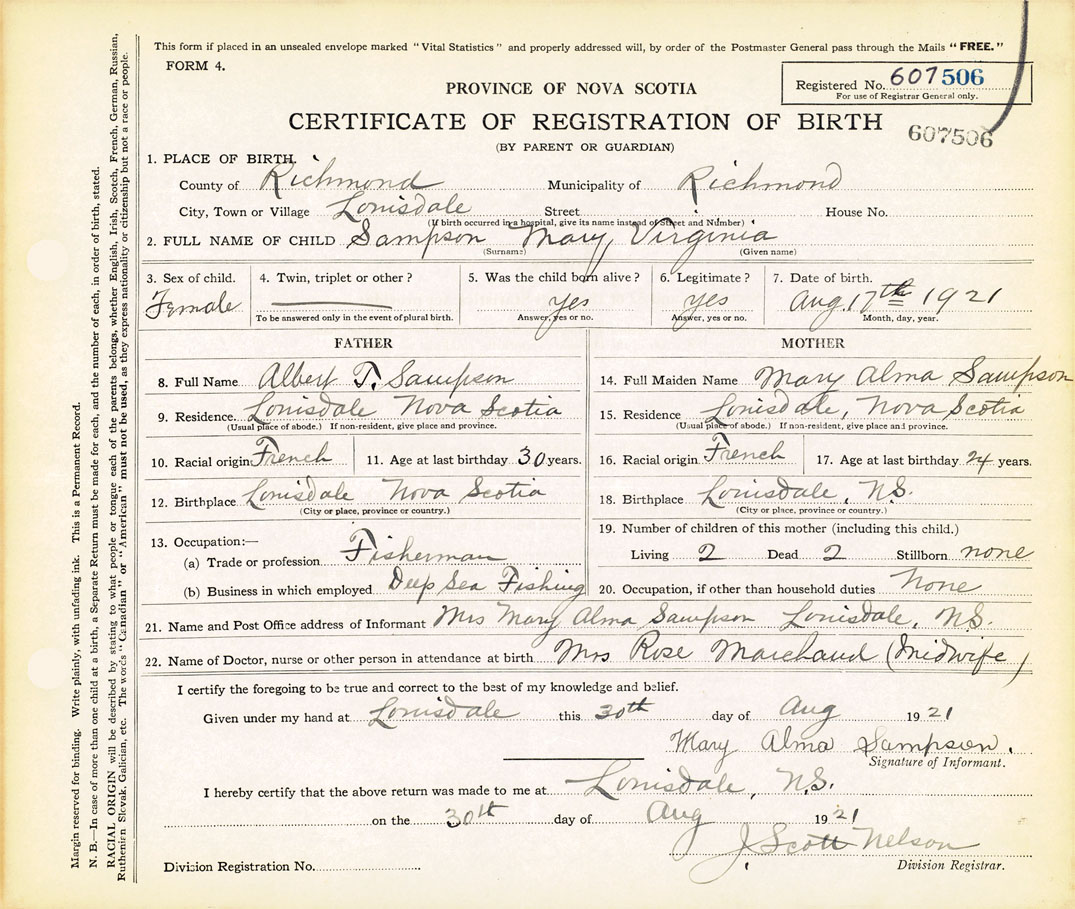 This form if placed in an unsealed envelope marked "Vital Statistics" and properly addressed will, by order of the Postmaster General pass through the Mails "FREE."
FORM 4.
Registered No. 607506
For use of Registrar General only.
PROVINCE OF NOVA SCOTIA
CERTIFICATE OF REGISTRATION OF BIRTH
607506
(BY PARENT OR GUARDIAN)
1. PLACE OF BIRTH.
County of Richmond Municipality of Richmond
City, Town or Village Louisdale Street House No.
(If birth occurred in a hospital, give its name instead of Street and Number)
2. FULL NAME OF CHILD Sampson Mary Virginia
(Surname) (Given name)
3. Sex of child. 4. Twin, triplet or other? 5. Was the child born alive? 6. Legitimate? 7. Date of birth.
Female yes yes Aug. 17th 1921
To be answered only in the event of plural birth. Answer, yes or no. Answer, yes or no. Month, day, year.
FATHER MOTHER
8. Full Name Albert T. Sampson 14. Full Maiden Name Mary Alma Sampson
9. Residence. Louisdale Nova Scotia 15. Residence Louisdale, Nova Scotia
(Usual place of abode.) If non-resident, give place and province. (Usual place of abode.) If non-resident, give place and province.
10. Racial origin French 11. Age at last birthday 30 years. 16. Racial origin French 17. Age at last birthday 24 years.
12. Birthplace Louisdale Nova Scotia 18. Birthplace Louisdale, N.S.
(City or place, province or country.) (City or place, province or country.)
13. Occupation:— 19. Number of children of this mother (including this child.)
(a) Trade or profession Fisherman Living 2 Dead 2 Stillborn none
(b) Business in which employed Deep Sea Fishing 20. Occupation, if other than household duties None
21. Name and Post Office address of Informant Mrs Mary Alma Sampson Louisdale, N.S.
22. Name of Doctor, nurse or other person in attendance at birth Mrs Rose Marchand (Midwife)
I certify the foregoing to be true and correct to the best of my knowledge and belief.
Given under my hand at Louisdale this 30th day of Aug 1921
Mary Alma Sampson.
Signature of Informant.
I hereby certify that the above return was made to me at Louisdale, N.S.
on the 30th day of Aug 1921
J Scott Nelson
Division Registration No. Division Registrar.
Margin reserved for binding. Write plainly, with unfading ink. This is a Permanent Record.
N. B.—In case of more than one child at a birth, a Separate Return must be made for each, and the number of each, in order of birth, stated.
RACIAL ORIGIN will be described by stating to what people or tongue each of the parents belongs, whether English, Irish, Scotch, French, German, Russian,
Ruthenian Slovak, Galician, etc. The words "Canadian" or "American" must not be used, as they express nationality or citizenship but not a race or people.